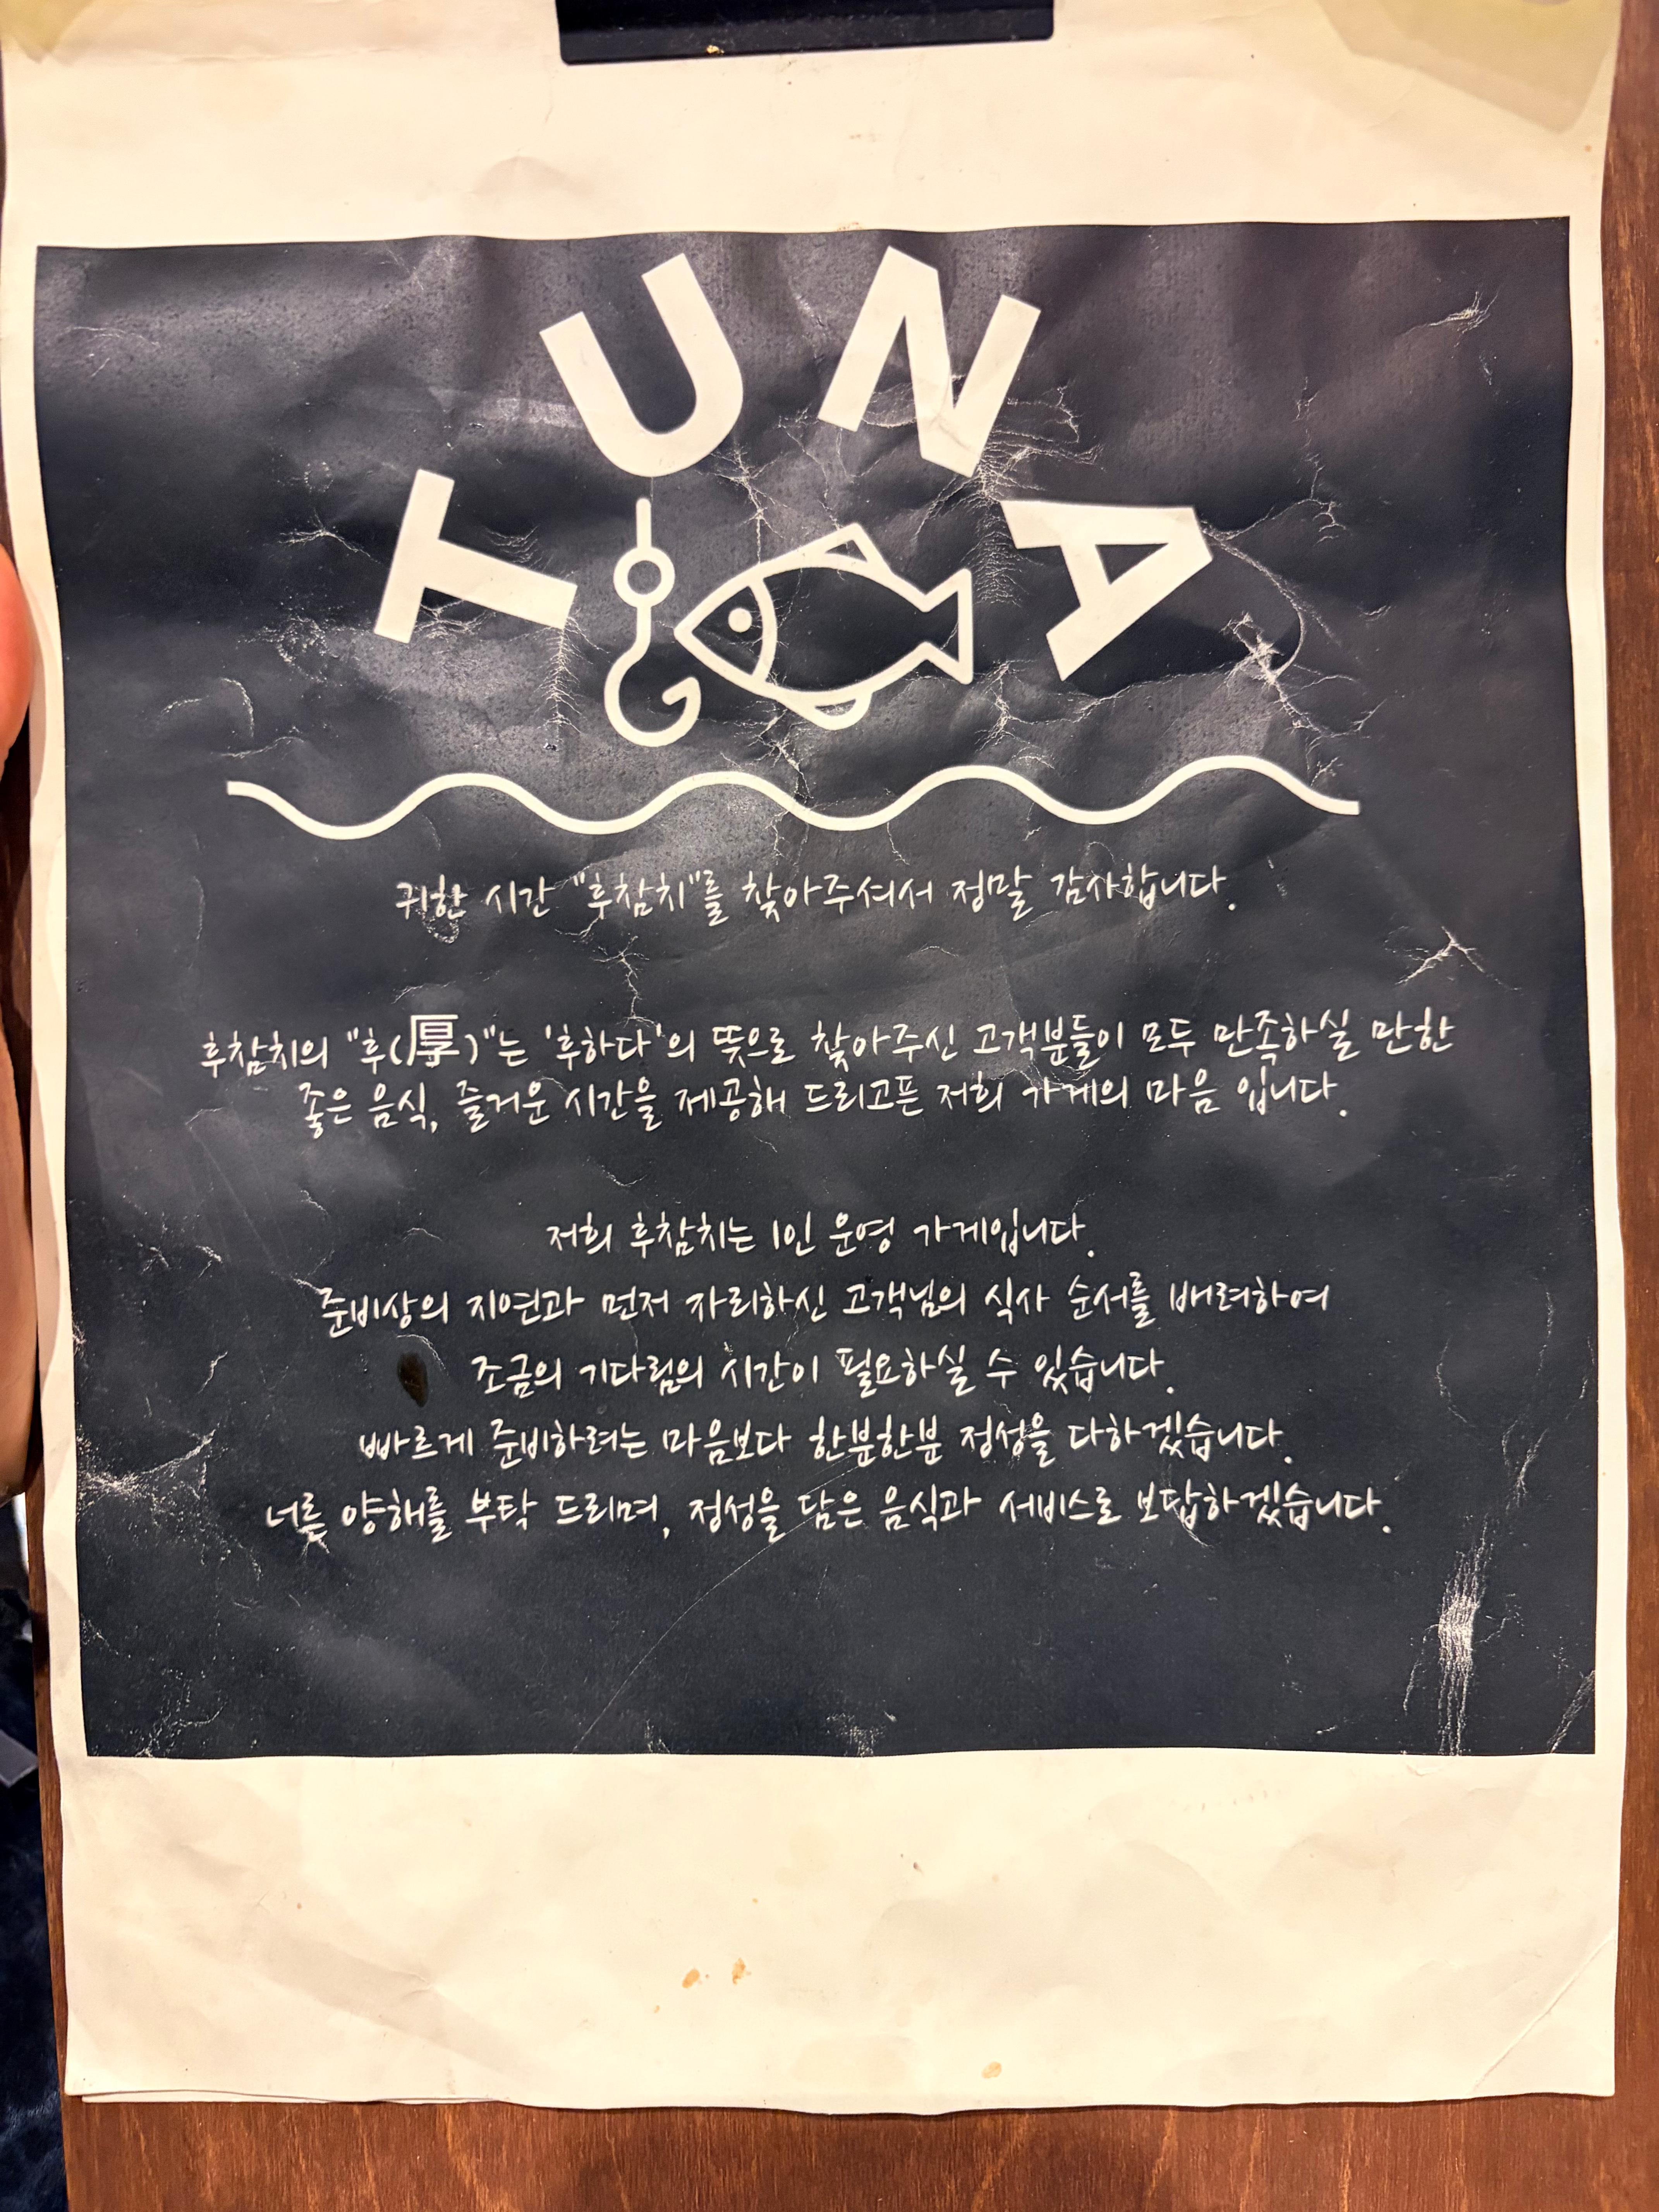 TUNA
귀한 시간 "후참치"를 찾아주셔서 정말 감사합니다.
후참치의 "후(厚)"는 '후하다'의 뜻으로 찾아주신 고객분들이 모두 만족하실 만한
좋은 음식, 즐거운 시간을 제공해 드리고픈 저희 가게의 마음 입니다.
저희 후참치는 1인 운영 가게입니다.
준비상의 지연과 먼저 자리하신 고객님의 식사 순서를 배려하여
조금의 기다림의 시간이 필요하실 수 있습니다.
빠르게 준비하려는 마음보다 한분한분 정성을 다하겠습니다.
너른 양해를 부탁 드리며, 정성을 담은 음식과 서비스로 보답하겠습니다.